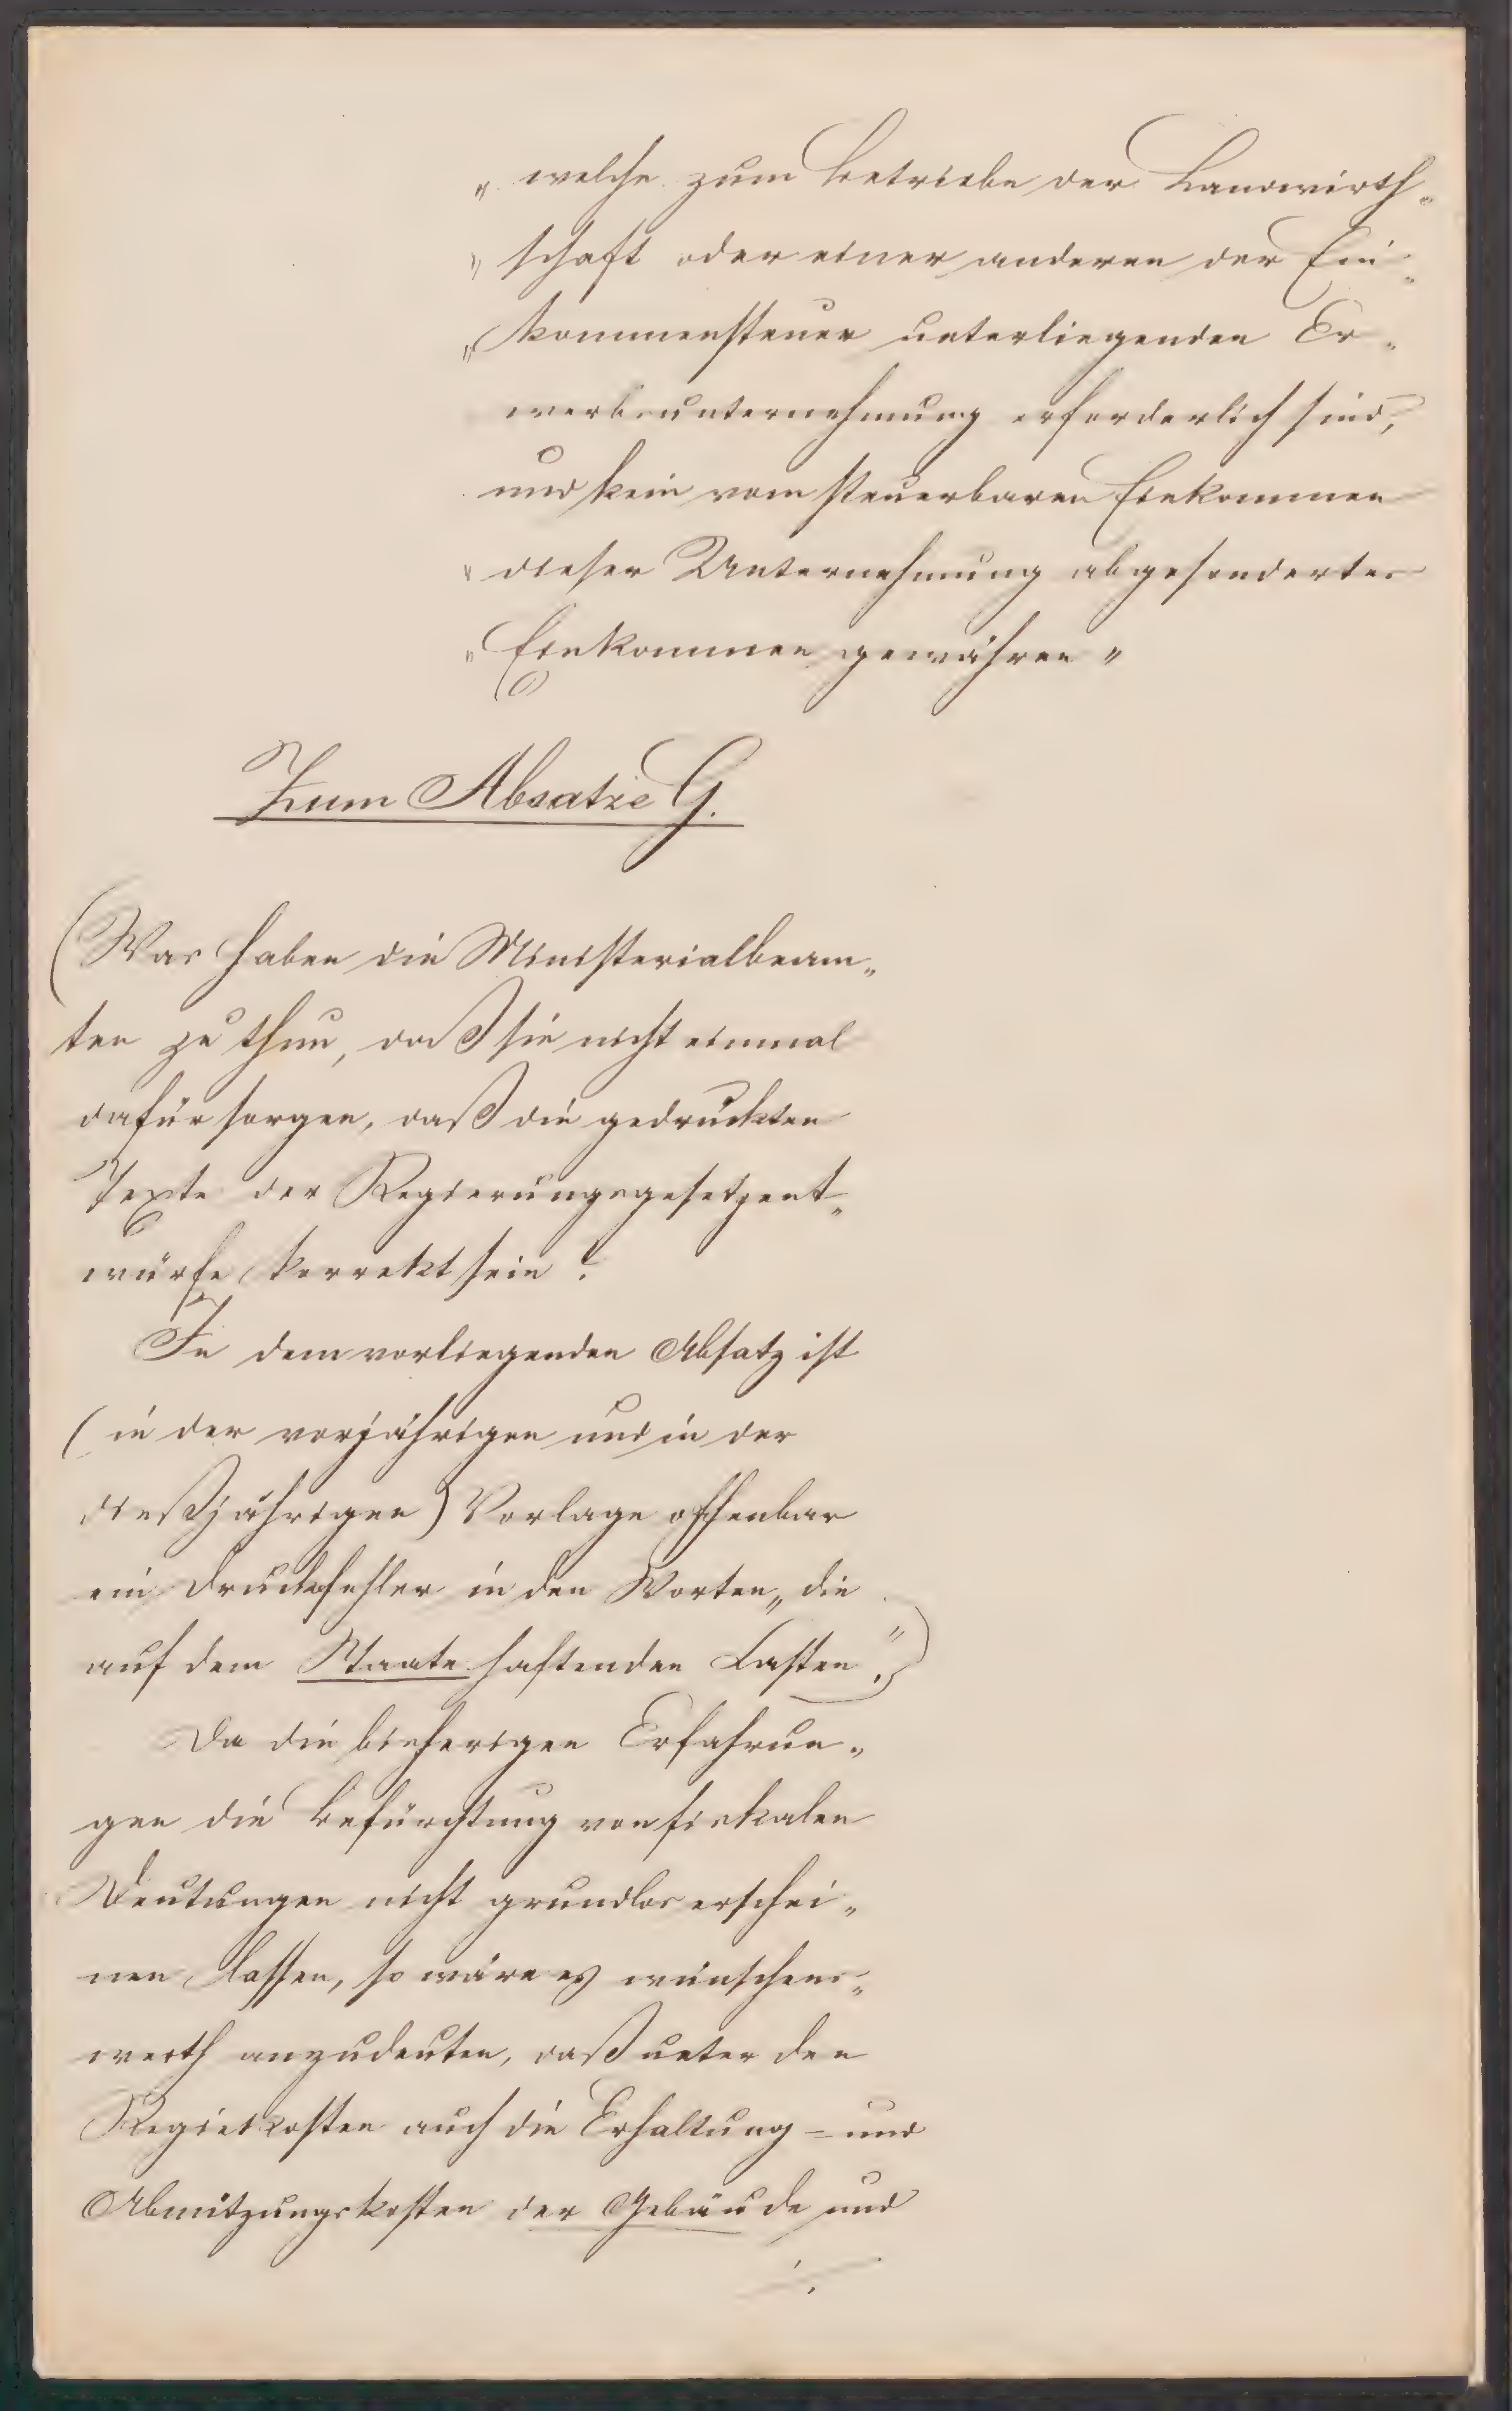 „welche zum Betriebe der Landwirth„
„schaft oder einer anderen der Ein„
„kommensteuer unterliegenden Er„
werbsunternehmung erforderlich sind,
und kein vom steuerbaren Einkommen
„dieser Unternehmung abgesondertes
„Einkommen gewähren"
Zum Absatze G.
(Was haben die Ministerialbeam„
ten zu thun, daß sie nicht einmal
dafür sorgen, daß die gedruckten
Texte der Regierungsgesetzent„
würfe korrekt sein?
In dem vorliegenden Absatz ist
(in der vorjährigen und in der
dießjährigen) Vorlage offenbar
ein Druckfehler in den Worten „die
auf dem Staate haftenden Lasten".)
Da die bisherigen Erfahrun„
gen die Befürchtung von fiskalen
Deutungen nicht grundlos erschei„
nen lassen, so wäre es wünschens„
werth anzudeuten, daß unter den
Regiekosten auch die Erhaltung= und
Abnützungskosten der Gebäude und
./.